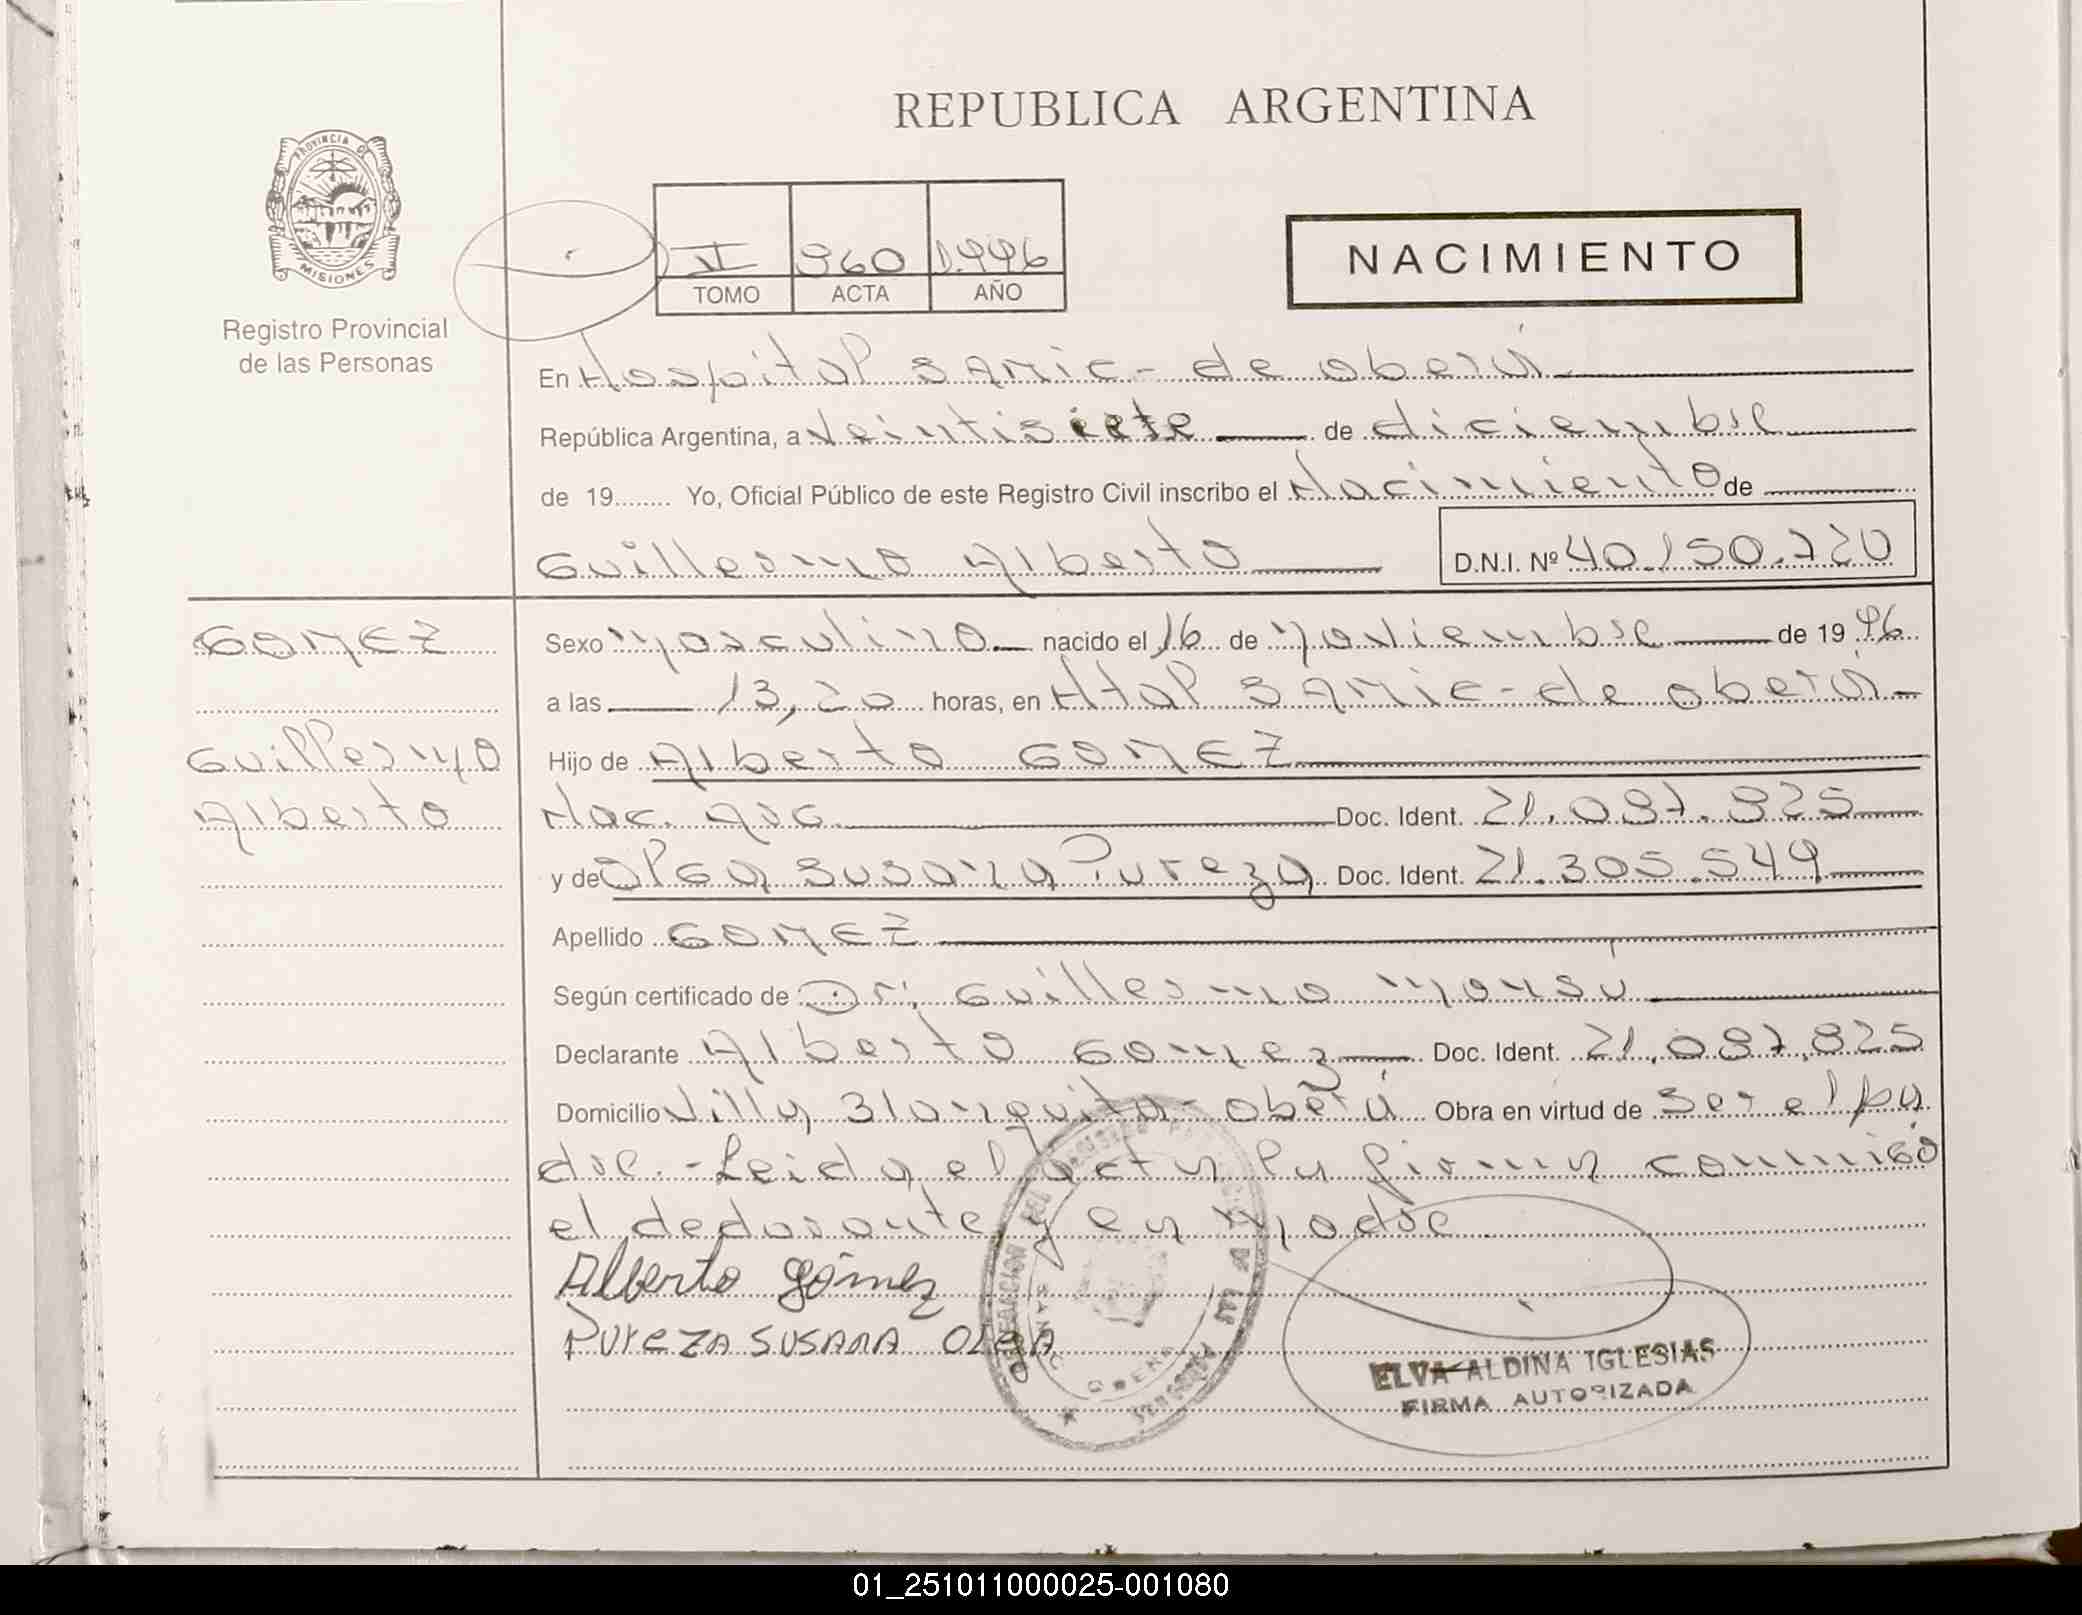 REPUBLICA ARGENTINA
PROVINCIA DE
MISIONES
Registro Provincial
de las Personas
960 1.996
TOMO ACTA AÑO
NACIMIENTO
En Hospital SAMIC - de oberá
República Argentina, a veintisiete de diciembre
de 19........ Yo, Oficial Público de este Registro Civil inscribo el Nacimiento de
Guillermo Alberto D.N.I. Nº 40.150.720
GOMEZ
Guillermo
Alberto
Sexo masculino nacido el 16 de noviembre de 19 96
a las 13,20 horas, en Htal SAMIC - de oberá
Hijo de Alberto GOMEZ
Nac. Arg. Doc. Ident. 21.087.825
y de Olga Susana Pureza Doc. Ident. 21.305.549
Apellido GOMEZ
Según certificado de Dr. Guillermo
Declarante Alberto Gomez Doc. Ident. 21.087.825
Domicilio Villa Blanquita - oberá Obra en virtud de ser el pa
dre. - Leida el acta la firma conmigo
el declarante y la madre
Alberto Gómez
PUreZA SUSANA OLGA
ELVA ALDINA IGLESIAS
FIRMA AUTORIZADA
01_251011000025-001080